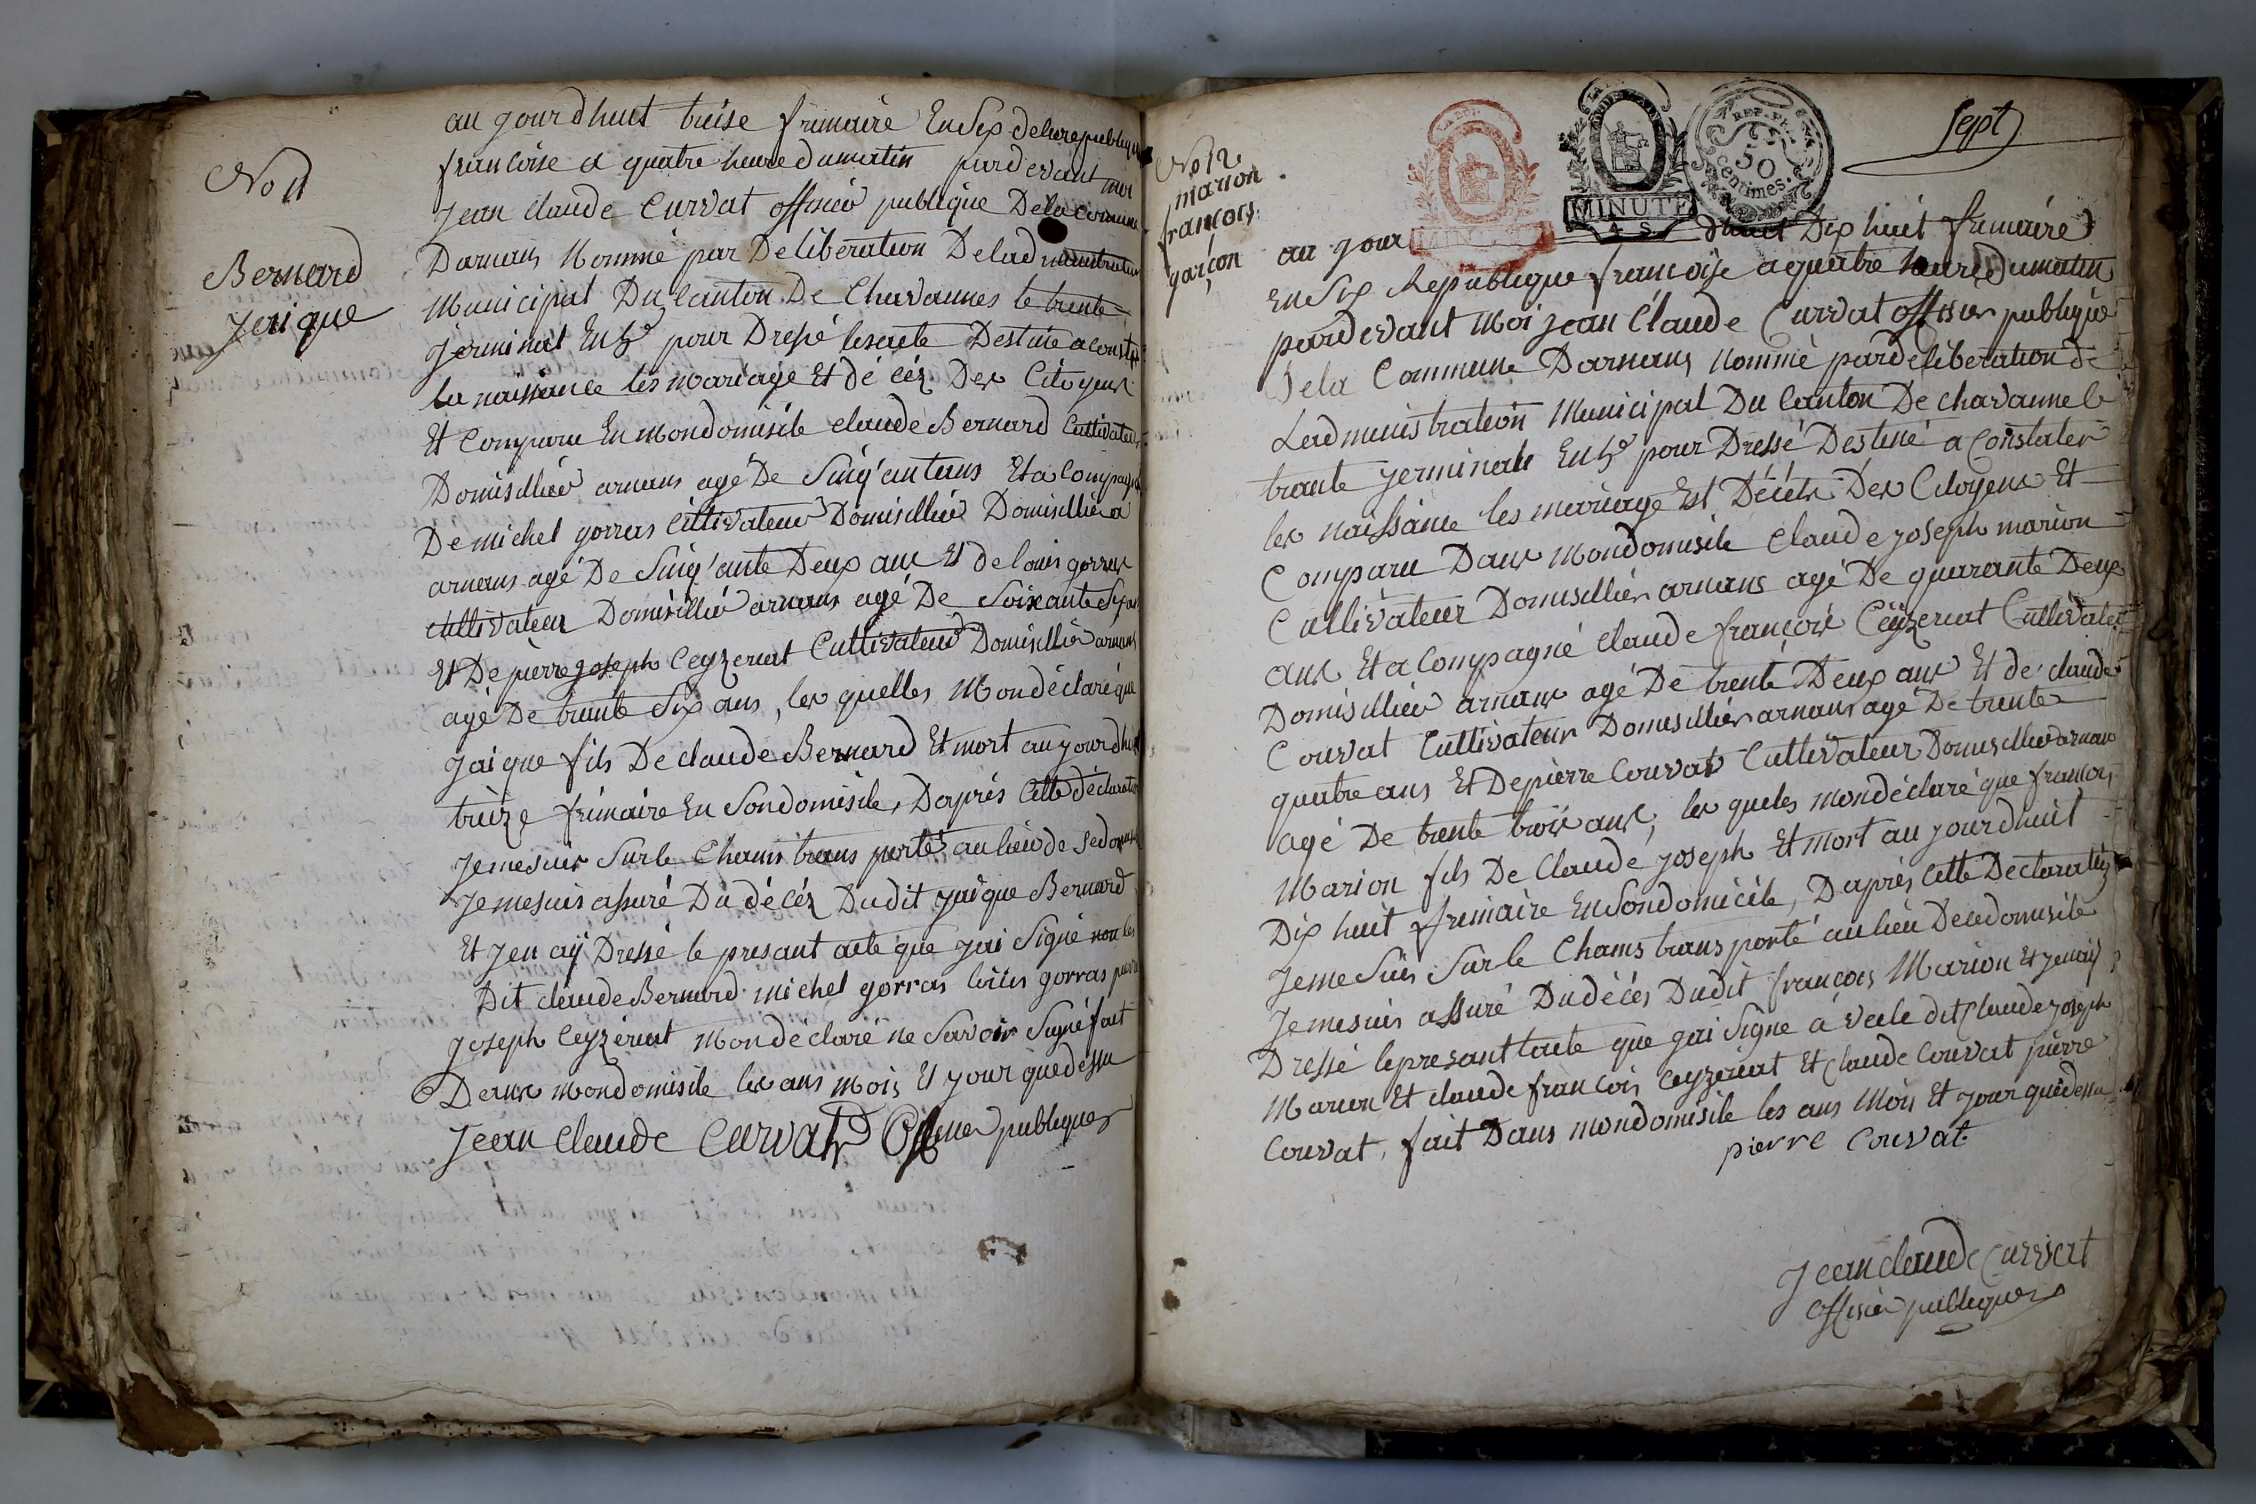 No 11
Bernard
jaique
au jourdhuit treise frimaire En Six delarepublique
francoise a quatre heure dumatin pardevant moi
Jean claude Curvat offisier publique Dela Commune
Darnans Nommé par Deliberation Delad ministration
Municipal Du Canton De Chavannes le trente
jerminal En 5e pour Dressé lesacte Destiné a constater
la naissance les mariage Et dé céz Des Citoyens
Et Comparu En mondomisile claude Bernard Cultivateur
Domisillié arnans agé De Sinq'antans Et a Compagné
De michel gorras Cultivateur Domisillié Domisillié a
arnans agé De Sinq'ante Deux ans Et de louis gorras
Cultivateur Domisillié arnans agé De Soixante Six ans
Et De pierre joseph Ceyzeriat Cultivateur Domisillié arnans
agé De trente Six ans, les quelles Mon déclaré que
jaique fils De claude Bernard Et mort au jourdhuit
treize frimaire En Sondomisile, Daprés Cette déclaration
Jemesuis Surle Chams trans porté au lieu de sedomisile
Jemesuis assuré Du décéz Dudit jaique Bernard
Et jen aÿ Dressé le presant acte que jai Signé non les
Dit claude Bernard michel gorras louis gorras pierre
joseph Ceyzériat Mon déclaré ne Savoir Signé fait
Dans mondomisile les ans mois Et jour que dessu
Jean claude Curvat Offisier publique
sept
No 12
marion
françois
garçon
LA REP. FRA.
MINUTE
MINUTE
4 S
REP. FRA.
50
centimes.
au jour dhuit Dix huit frimaire
En Six Republique francoise a quatre heure dumatin
pardevant Moi jean Claude Curvat offisier publique
Dela Commune Darnans nommé pardeliberation de
Ladministration Municipal Du Canton De chavanne le
trante jerminale En 5e pour Dressé Destiné a Constater
les naissance les mariage Est Décéts Des Citoyens Et
Comparu Dans Mondomisile Claude joseph marion
Cultivateur Domisillier arnans agé De quarante Deux
ans Et a Compagné claude françois Ceÿzeriat Cultivateur
Domisillié arnans agé De trente Deux ans Et de claude
Couvat Cultivateur Domisillier arnans agé De trente
quatre ans Et De pierre Couvat Cultivateur Domisillié arnans
agé De trente trois ans, les queles mondéclaré que françois
Marion fils De Claude joseph Et mort au jourdhuit
Dix huit frimaire En Sondomicile, Daprés Cette Declaration
Jeme Suis Surle Chams trans porté au lieu Decedomisile
Je mesuis assuré Dudécés Dudit françois Marion Et jenaij
Dressé lepresant lacte que jai Signe á vecle dit Claude joseph
Marion Et claude françois Ceyzeriat Et Claude Couvat pierre
Couvat, fait Dans mondomisile les ans Mois Et jour quedessu
pierre Couvat
Jean claude Curvat
offisier publique